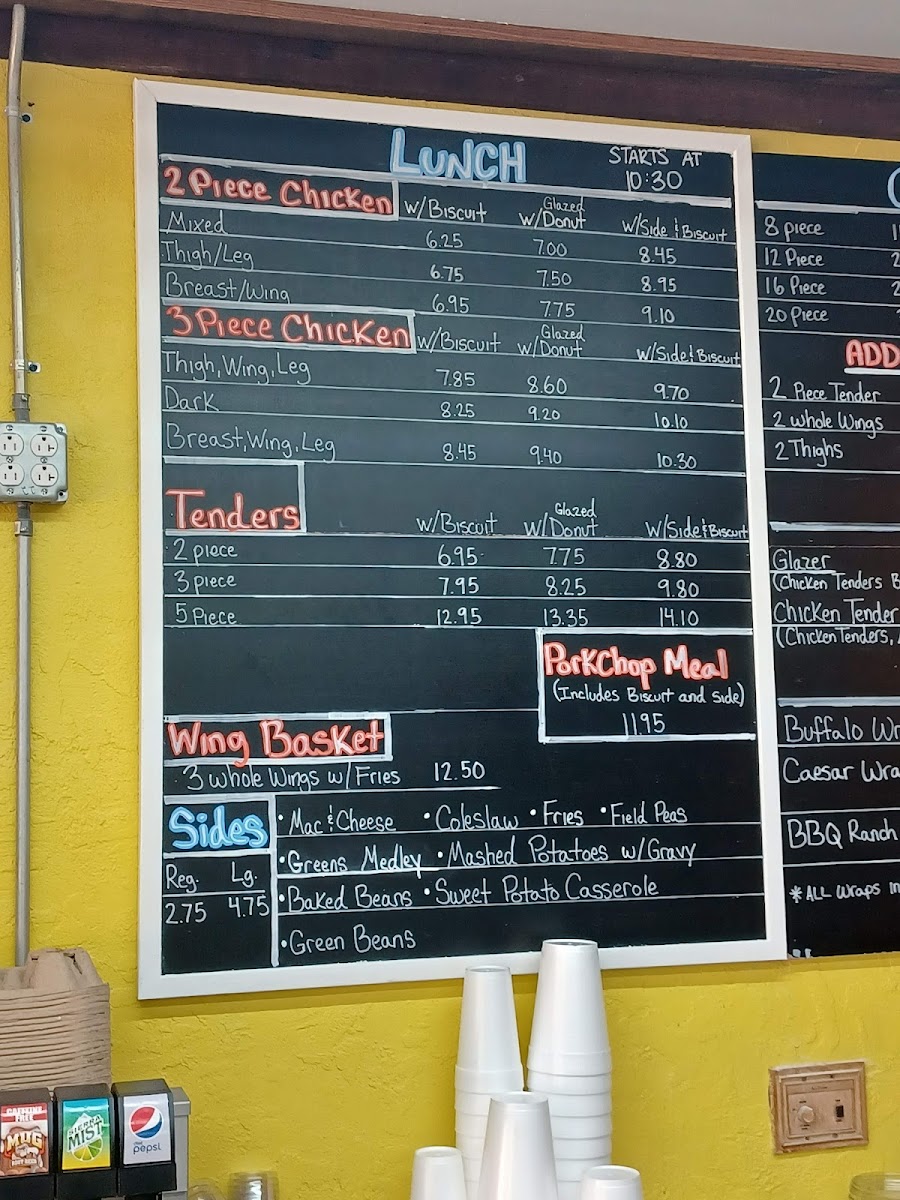 LUNCH STARTS AT 10:30
2 Piece Chicken w/Biscuit Glazed w/Donut w/Side & Biscuit
Mixed 6.25 7.00 8.45
Thigh/Leg 6.75 7.50 8.95
Breast/Wing 6.95 7.75 9.10
3 Piece Chicken w/Biscuit Glazed w/Donut w/Side & Biscuit
Thigh, Wing, Leg 7.85 8.60 9.70
Dark 8.25 9.20 10.10
Breast, Wing, Leg 8.45 9.40 10.30
Tenders w/Biscuit Glazed w/Donut w/Side & Biscuit
2 piece 6.95 7.75 8.80
3 piece 7.95 8.25 9.80
5 Piece 12.95 13.35 14.10
PorkChop Meal
(Includes Biscuit and Side)
11.95
Wing Basket
3 whole Wings w/ Fries 12.50
Sides
Reg. Lg.
2.75 4.75
• Mac & Cheese • Coleslaw • Fries • Field Peas
• Greens Medley • Mashed Potatoes w/ Gravy
• Baked Beans • Sweet Potato Casserole
• Green Beans
8 piece
12 Piece
16 Piece
20 piece
ADD
2 Piece Tender
2 whole Wings
2 Thighs
Glazer
(Chicken Tenders
Chicken Tender
(Chicken Tenders,
Buffalo
Caesar
BBQ Ranch
*ALL Wraps
CAFFEINE FREE
MUG
ROOT BEER
SIERRA MIST
diet pepsi